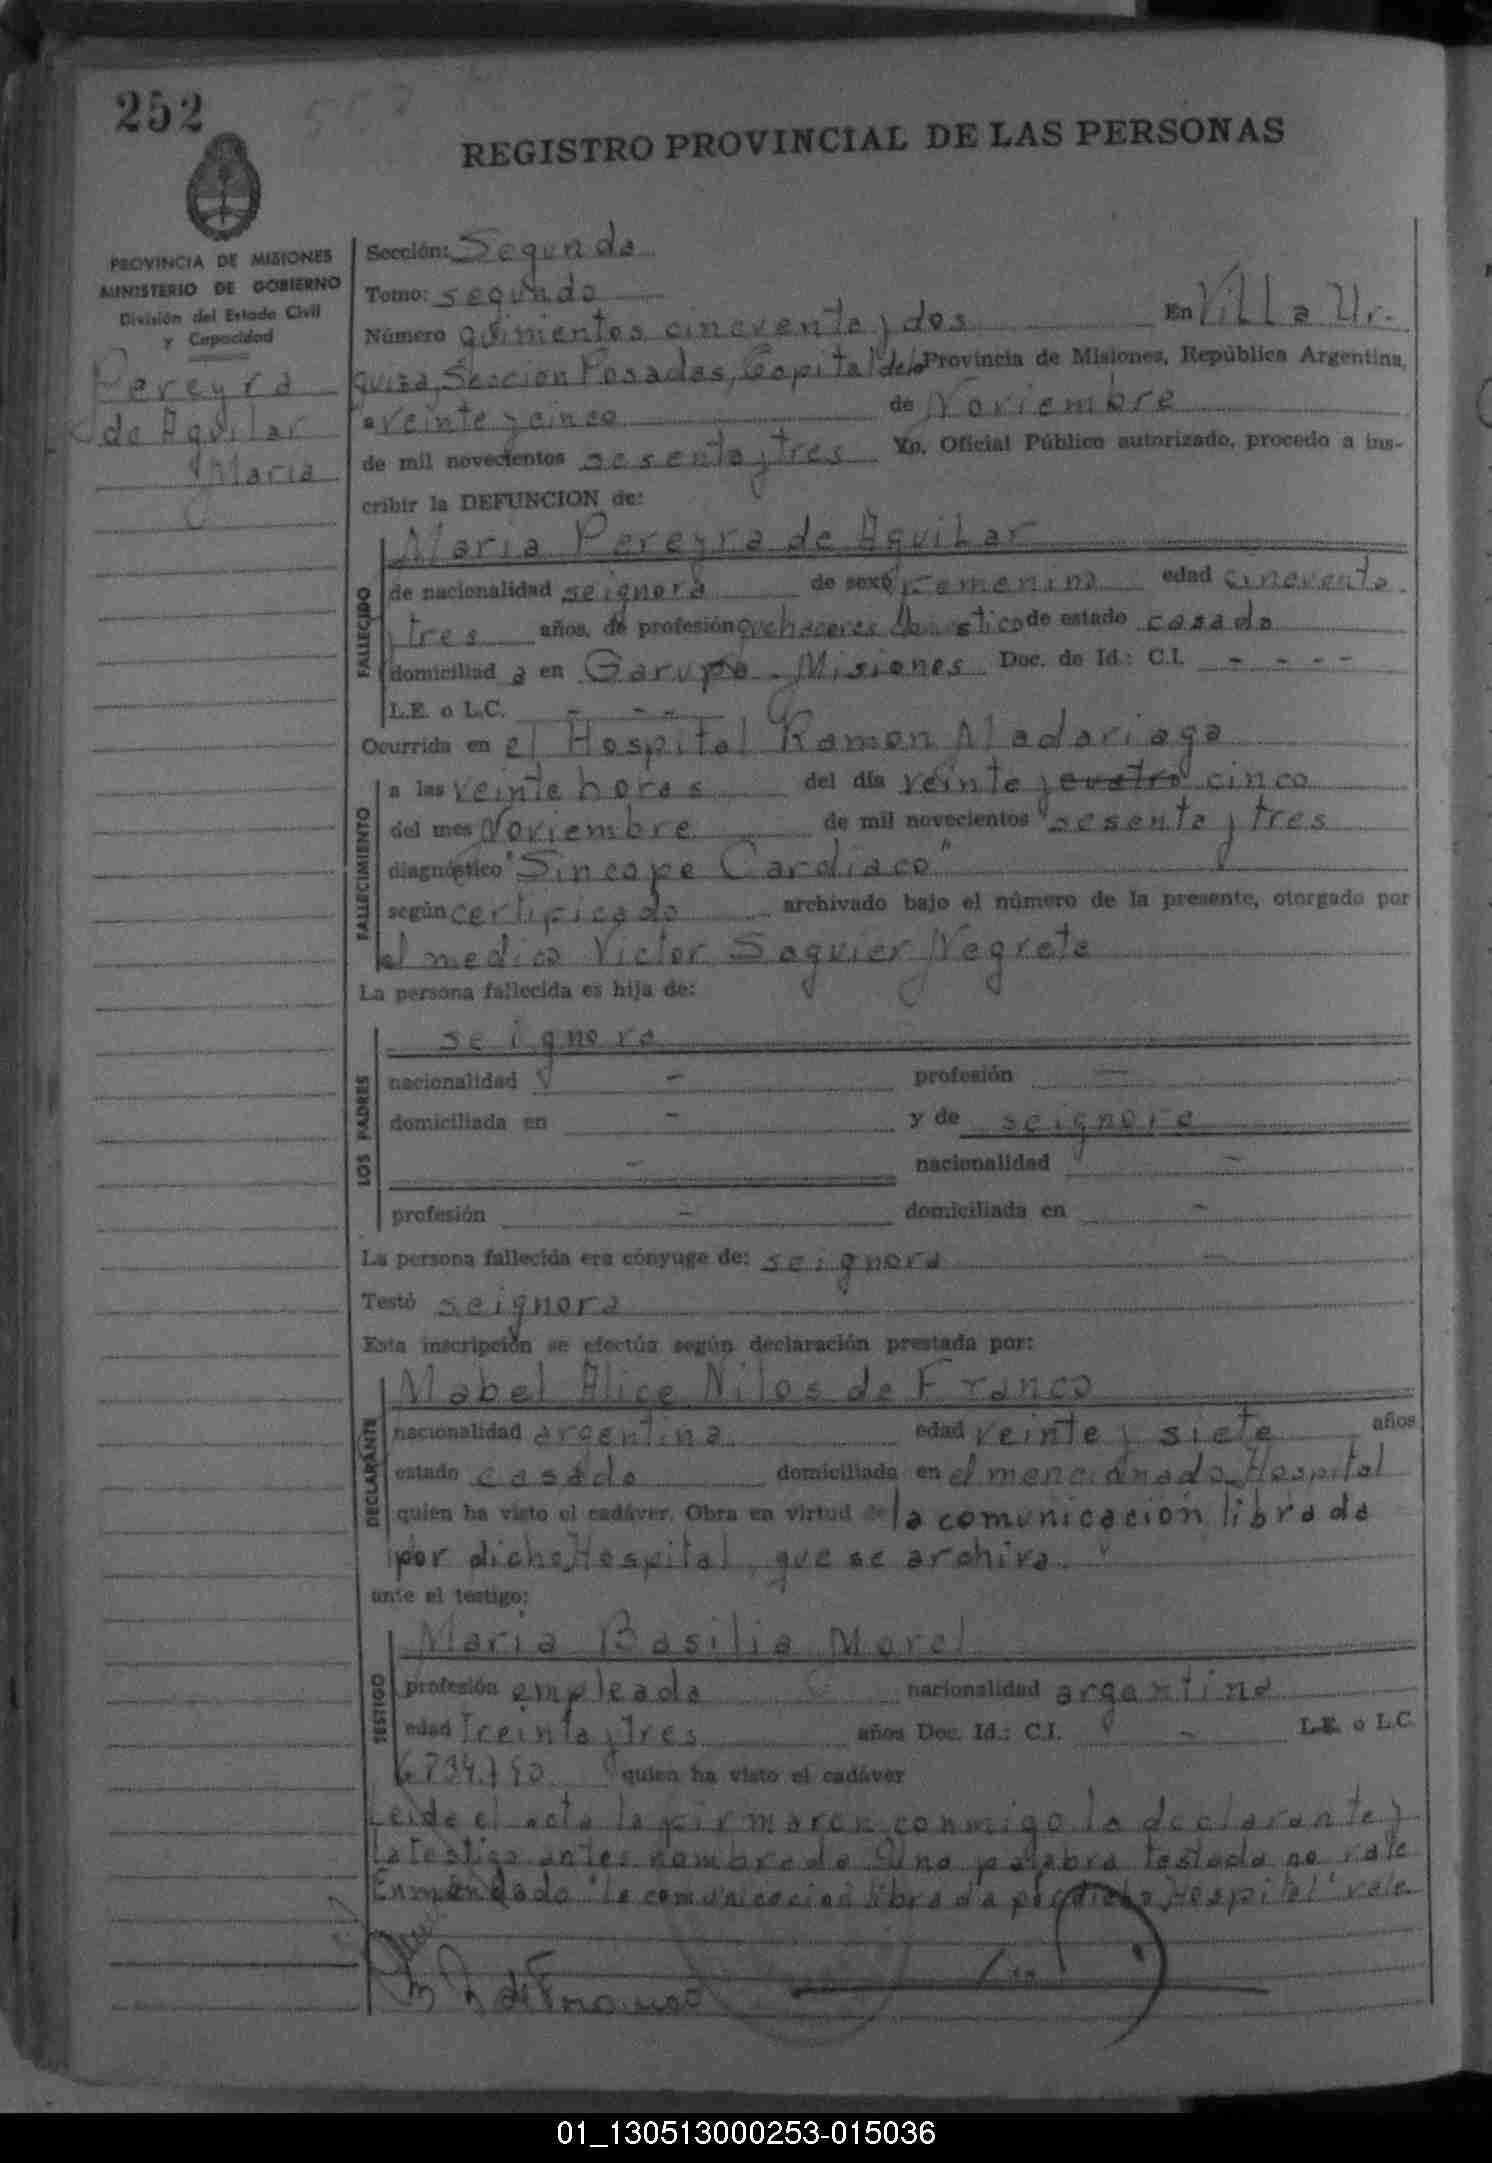 252
552
REGISTRO PROVINCIAL DE LAS PERSONAS
PROVINCIA DE MISIONES
MINISTERIO DE GOBIERNO
División del Estado Civil
y Capacidad
Pereyra
de Aguilar
Maria
Sección: Segunda
Tomo: segundo
Número quinientos cincuenta y dos En Villa Ur-
quiza, Sección Posadas, Capital de la Provincia de Misiones, República Argentina,
a veinte y cinco de Noviembre
de mil novecientos sesenta y tres Yo, Oficial Público autorizado, procedo a ins-
cribir la DEFUNCION de:
Maria Pereyra de Aguilar
FALLECIDO
de nacionalidad se ignora de sexo Femenino edad cincuenta
y tres años, de profesión quehaceres domesticos de estado casada
domiciliad a en Garupa - Misiones Doc. de Id.: C.I. - - - -
L.E. o L.C. - - -
Ocurrida en el Hospital Ramon Madariaga
FALLECIMIENTO
a las veinte horas del día veinte y cuatro cinco
del mes Noviembre de mil novecientos sesenta y tres
diagnóstico "Sincope Cardiaco"
según certificado archivado bajo el número de la presente, otorgado por
el medico Victor Saguier Negrete
La persona fallecida es hija de:
LOS PADRES
se ignora
nacionalidad - profesión -
domiciliada en - y de se ignora
- nacionalidad -
profesión - domiciliada en -
La persona fallecida era cónyuge de: se ignora -
Testó se ignora
Esta inscripción se efectúa según declaración prestada por:
DECLARANTE
Mabel Alice Nilos de Franco
nacionalidad argentina edad veinte y siete años
estado casada domiciliada en el mencionado Hospital
quien ha visto el cadáver. Obra en virtud de la comunicacion librada
por dicho Hospital, que se archiva.
ante el testigo:
TESTIGO
Maria Basilia Morel
profesión empleada nacionalidad argentina
edad Treinta y Tres años Doc. Id.: C.I. - L.E. o L.C.
quien ha visto el cadáver
Leida el acta la firmaron conmigo la declarante y
la Testigo antes nombrada. Una palabra testada no vale
Enmendado "la comunicacion librada por dicho Hospital" vale
de Franco
01_130513000253-015036